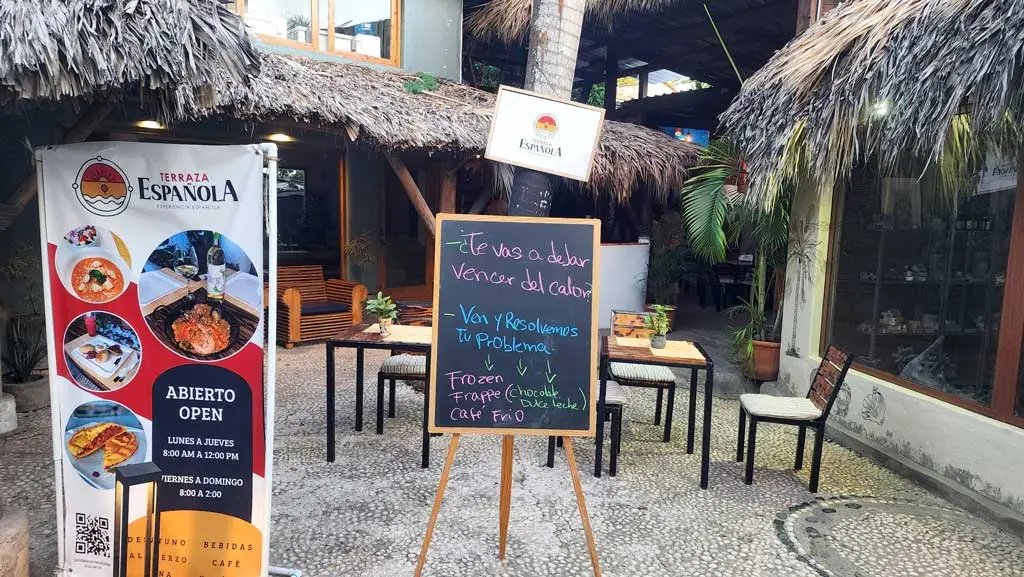 TERRAZA
ESPAÑOLA
EXPERIENCIA ESPAÑOLA
ABIERTO
OPEN
LUNES A JUEVES
8:00 AM A 12:00 PM
VIERNES A DOMINGO
8:00 A 2:00
BEBIDAS
CAFÉ
TERRAZA
ESPAÑOLA
-¿Te vas a dejar
vencer del calor?
-Ven y Resolvemos
Tu Problema
Frozen
Frappe (Chocolate
Dulce Leche)
Café FRíO